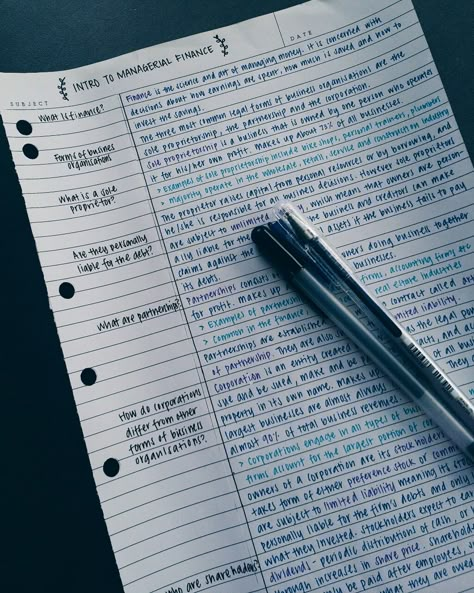 INTRO TO MANAGERIAL FINANCE
SUBJECT
DATE
What is finance?
Forms of busines organisations
What is a sole proprietor?
Are they personally liable for the debt?
What are partnership?
How do corporations differ from other forms of business organisations?
who are shareholders?
Finance is the science and art of managing money. It is concerned with
decisions about how earnings are spent, how much is saved and how to
invest the savings.
The three most common legal forms of business organisations are the
sole proprietorship, the partnership and the corporation.
Sole proprietorship is a business that is owned by one person who operates
it for his/her own profit. makes up about 75% of all businesses.
> Examples of sole proprietorship include bike shops, personal trainers, plumbers
> majority operate in the wholesale, retail, service and construction industry
The proprietor raises capital from personal resources or by borrowing, and
he/she is responsible for all business decisions. However sole proprietors
are subject to unlimited which means that owners are person-
ally liable for the business and creditors can make
claims against the assets if the business fails to pay
its debts.
Partnerships consists owners doing business together
for profit. makes up businesses.
> Examples of partnership firms, accounting firms
> Common in the finance, real estate industries
Partnerships are established contract called
of partnership. They are also limited liability.
Corporation is an entity created the legal
sue and be sued, make and be contracts, and
property in its own name. makes of all
largest businesses are almost always They
almost 90% of total business revenues.
> Corporations engage in all types of
firms account for the largest portion of
owners of a corporation are its stockholders
takes form of either preference stock or common
are subject to limited liability meaning its
personally liable for the firm's debts and only
what they invested. Stockholders expect to
dividends - periodic distributions of cash, or
through increases in share price. Shareholders
only be paid after employees,
what they are owed